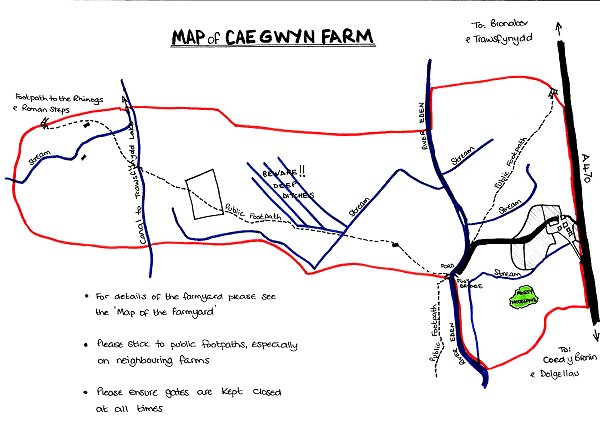 MAP of CAE GWYN FARM
To: Bronaber
& Trawsfynydd
Footpath to the Rhinogs
& Roman Steps
Stream
Canal to Trawsfynydd Lake
BEWARE!!
DEEP
DITCHES
Public Footpath
Stream
RIVER EDEN
Stream
Public Footpath
Stream
A470
FORD
FOOT
BRIDGE
Stream
Public Footpath
RIVER EDEN
To:
Coed y Brenin
& Dolgellau
• For details of the farmyard please see
the 'Map of the Farmyard'
• Please stick to public footpaths, especially
on neighbouring farms
• Please ensure gates are kept closed
at all times